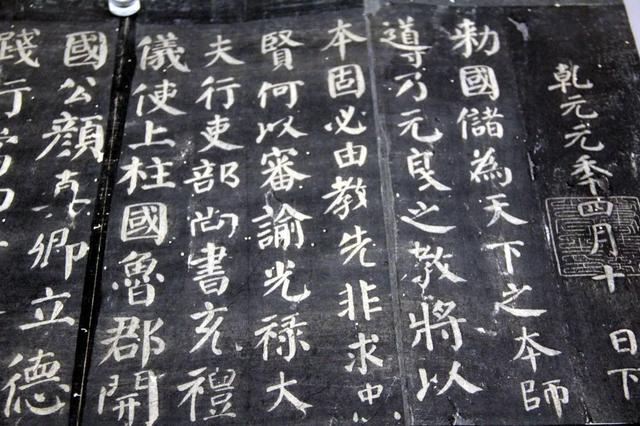 乾元元年四月十 日下
勅國儲為天下之本師
導乃元良之教將以
本固必由教先非求忠
賢何以審諭光祿大
夫行吏部尚書充禮
儀使上柱國魯郡開
國公顏真卿立德
踐行當四